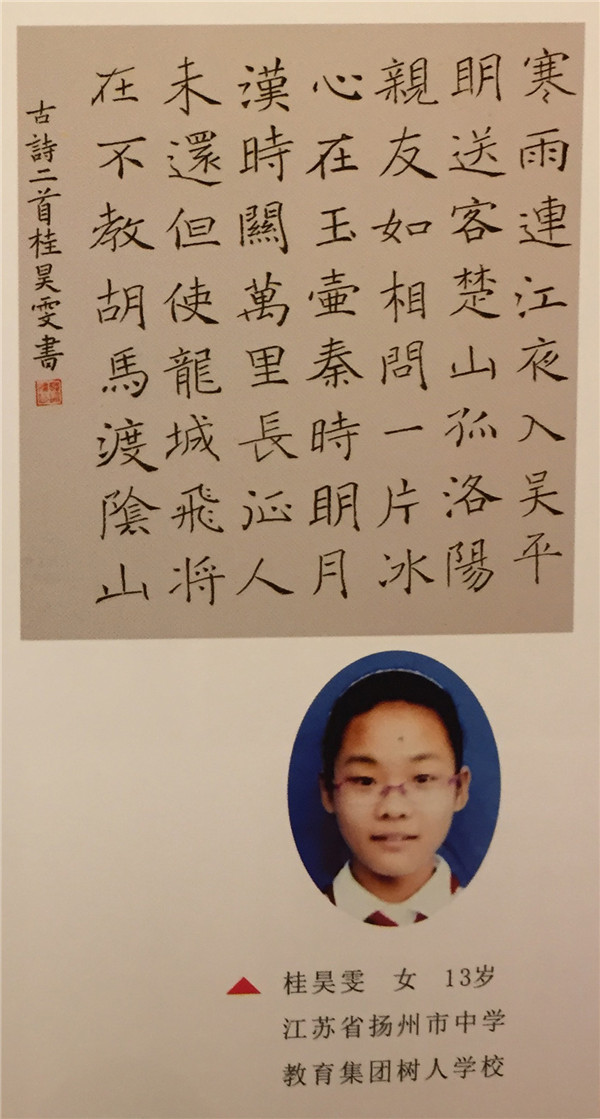 寒雨連江夜入吴平
明送客楚山孤洛陽
親友如相問一片冰
心在玉壺秦時明月
漢時關萬里長征人
未還但使龍城飛将
在不教胡馬渡陰山
古詩二首桂昊雯書
桂昊雯 女 13岁
江苏省扬州市中学
教育集团树人学校